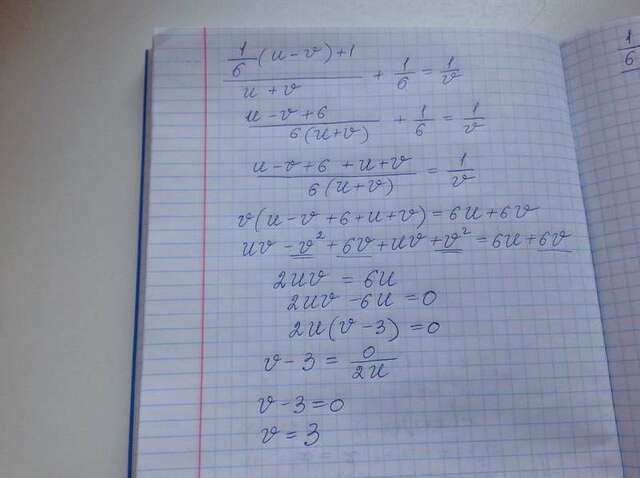 1/6 (u - v) + 1 / u + v + 1/6 = 1/v
u - v + 6 / 6(u+v) + 1/6 = 1/v
u - v + 6 + u + v / 6(u+v) = 1/v
v(u - v + 6 + u + v) = 6u + 6v
uv - v² + 6v + uv + v² = 6u + 6v
2uv = 6u
2uv - 6u = 0
2u(v - 3) = 0
v - 3 = 0/2u
v - 3 = 0
v = 3
1/6